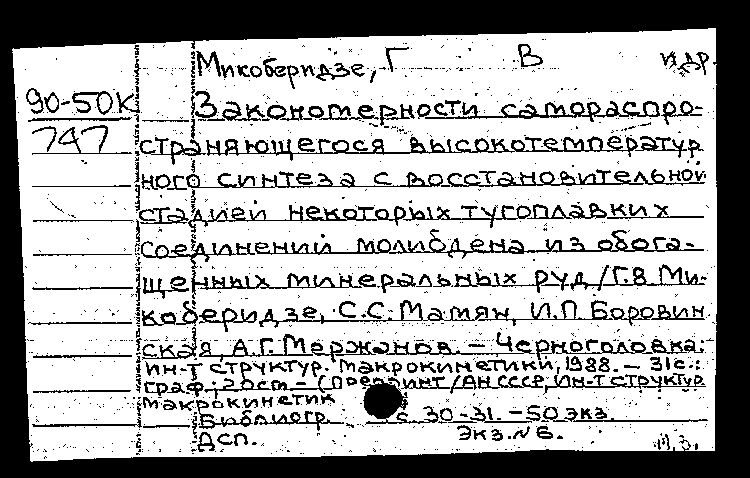 Микоберидзе, Г В и др.
90-50К Закономерности самораспро-
747 страняющегося высокотемператур
ного синтеза с восстановительной
стадией некоторых тугоплавких
соединений молибдена из обога-
щенных минеральных руд /Г.В. Ми-
коберидзе, С.С. Мамян, И.П. Боровин
ская, А.Г. Мержанов. – Черноголовка:
ин-т структур. макрокинетики, 1988. – 31с.:
граф.; 20см – (Препринт /АН СССР, Ин-т структур
макрокинетик
Библиогр. с. 30-31. – 50 экз.
ДСП. Экз. № 6.